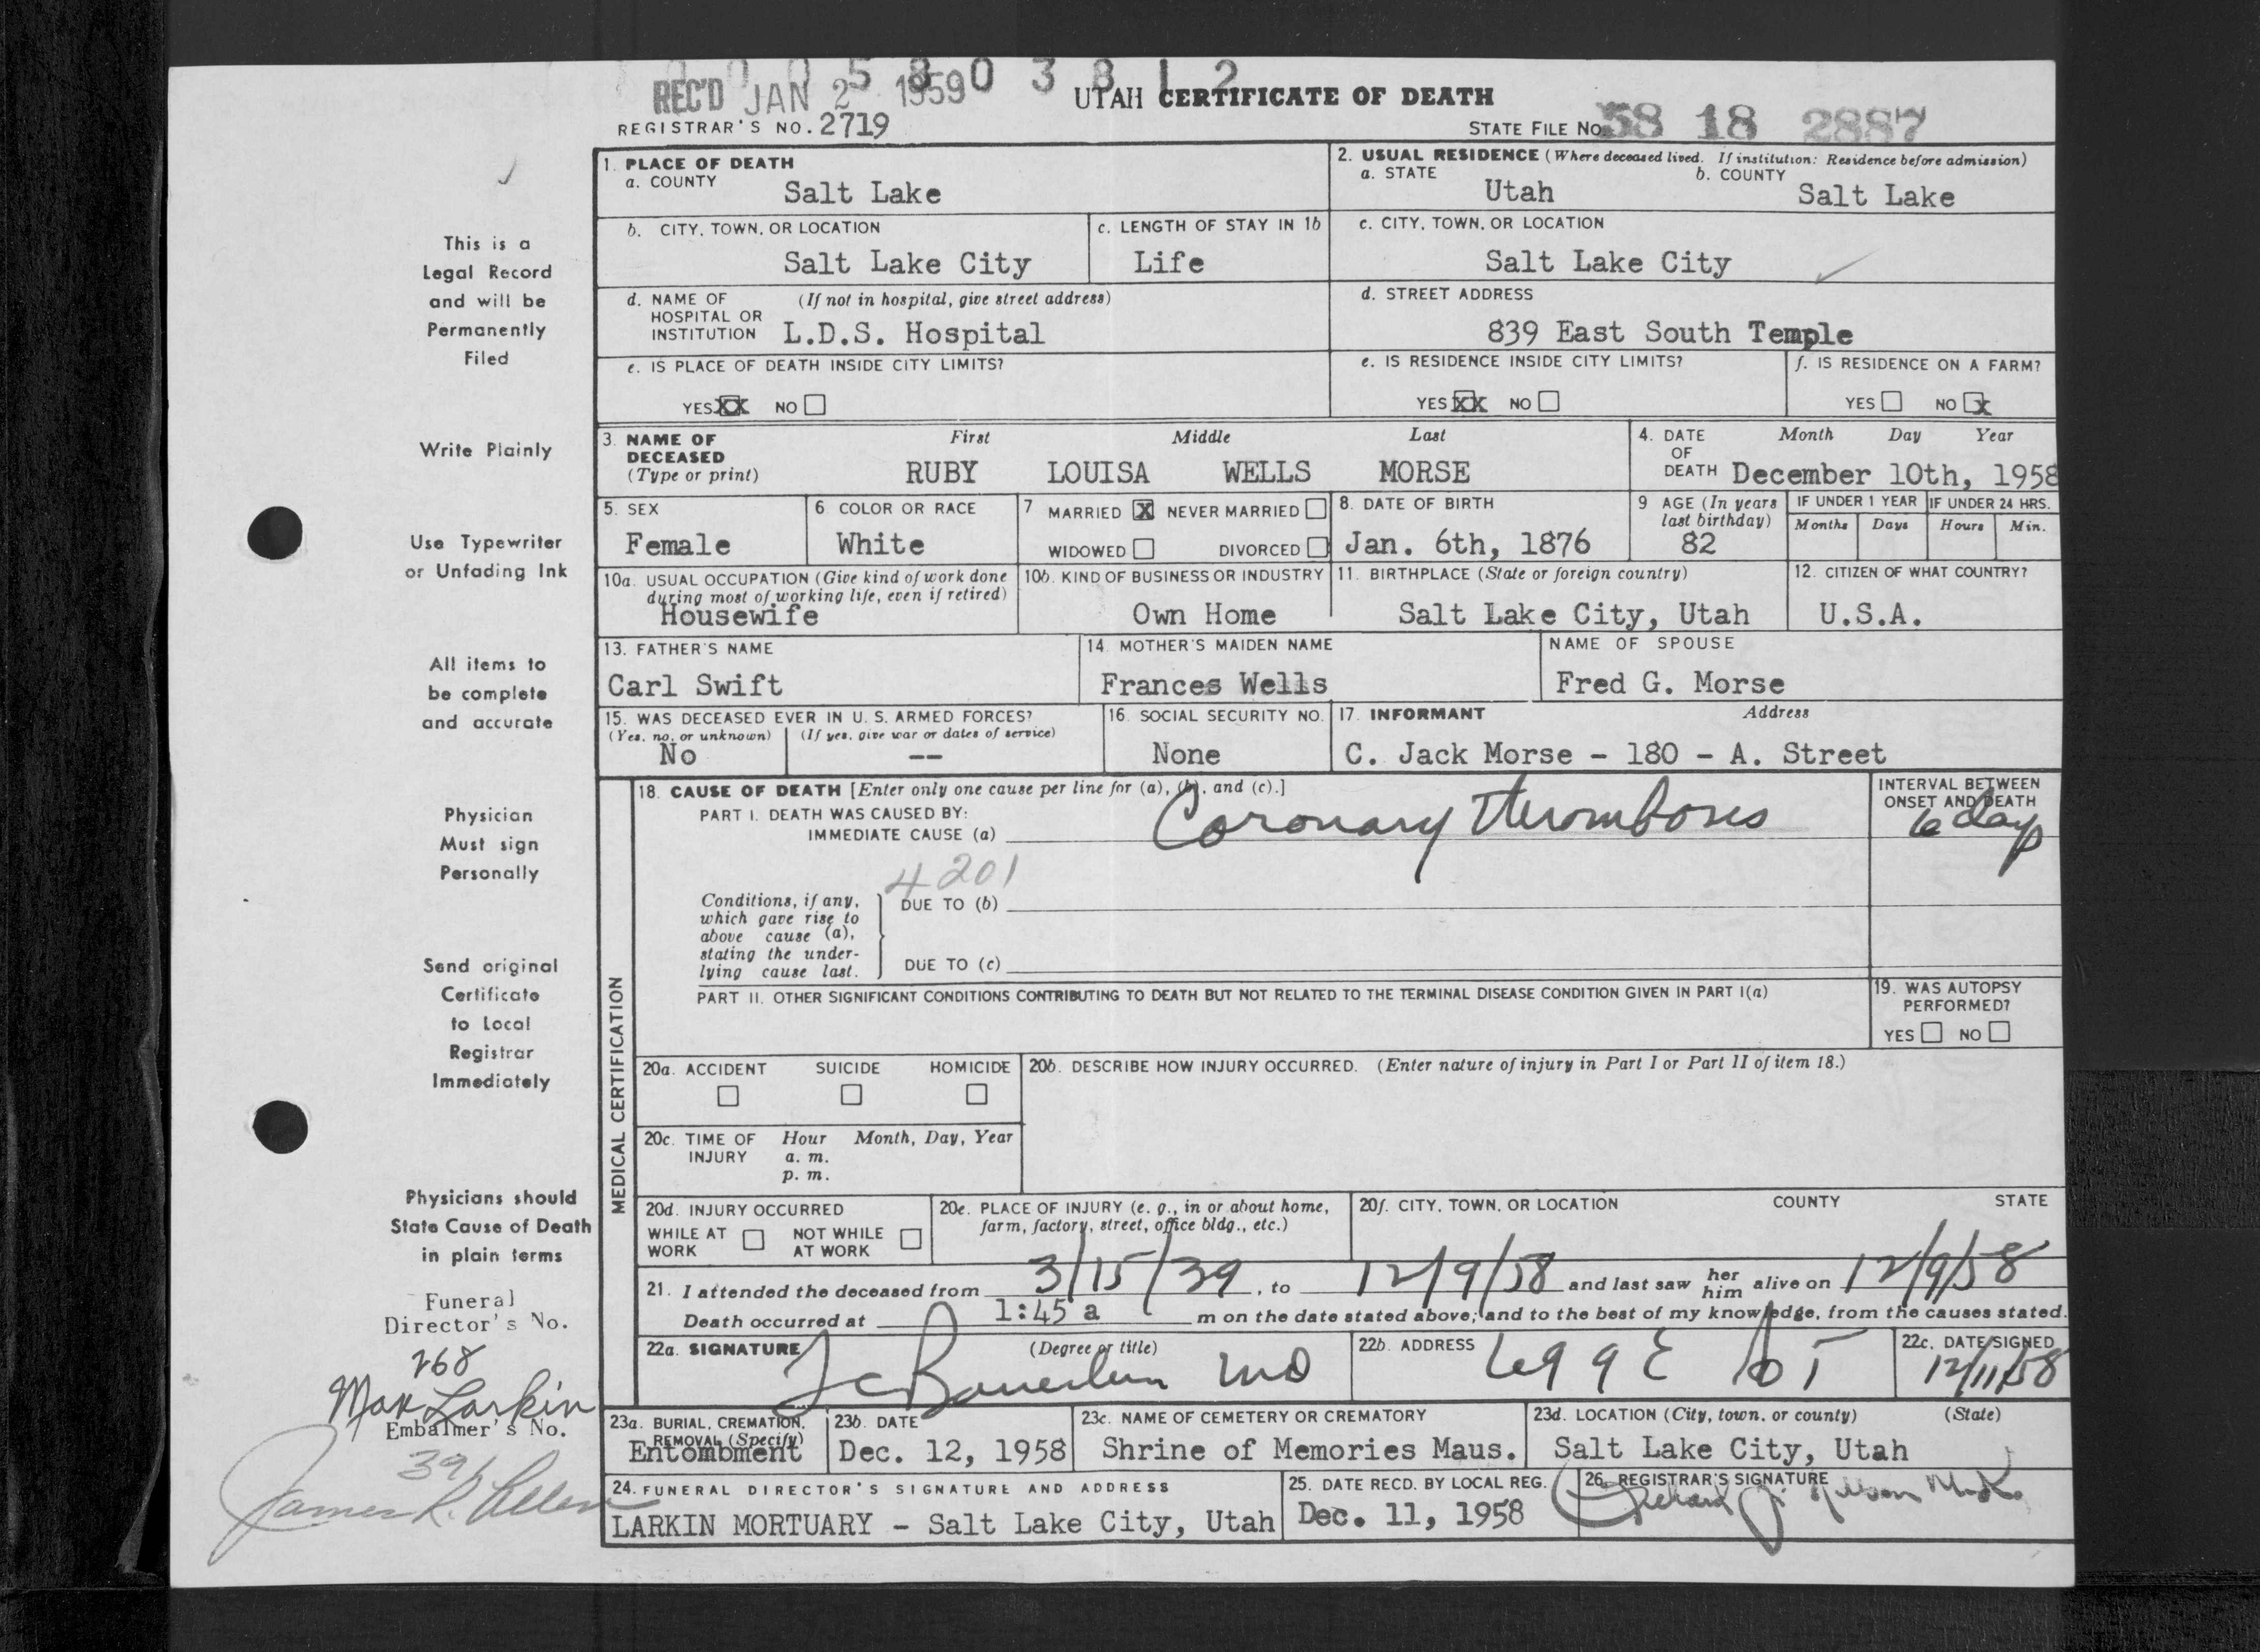 0 0 0 5 8 0 3 8 1 2
REC'D JAN 2 1959
UTAH CERTIFICATE OF DEATH
REGISTRAR'S NO. 2719
STATE FILE NO. 58 18 2887
1. PLACE OF DEATH
a. COUNTY
Salt Lake
2. USUAL RESIDENCE (Where deceased lived. If institution: Residence before admission)
a. STATE
Utah
b. COUNTY
Salt Lake
b. CITY, TOWN, OR LOCATION
Salt Lake City
c. LENGTH OF STAY IN 1b
Life
c. CITY, TOWN, OR LOCATION
Salt Lake City
d. NAME OF HOSPITAL OR INSTITUTION
(If not in hospital, give street address)
L.D.S. Hospital
d. STREET ADDRESS
839 East South Temple
e. IS PLACE OF DEATH INSIDE CITY LIMITS?
YES XX NO
e. IS RESIDENCE INSIDE CITY LIMITS?
YES XX NO
f. IS RESIDENCE ON A FARM?
YES NO X
3. NAME OF DECEASED
(Type or print)
First Middle Last
RUBY LOUISA WELLS MORSE
4. DATE OF DEATH
Month Day Year
December 10th, 1958
5. SEX
Female
6. COLOR OR RACE
White
7 MARRIED X NEVER MARRIED
WIDOWED DIVORCED
8. DATE OF BIRTH
Jan. 6th, 1876
9 AGE (In years last birthday)
82
IF UNDER 1 YEAR
Months Days
IF UNDER 24 HRS.
Hours Min.
10a. USUAL OCCUPATION (Give kind of work done during most of working life, even if retired)
Housewife
10b. KIND OF BUSINESS OR INDUSTRY
Own Home
11. BIRTHPLACE (State or foreign country)
Salt Lake City, Utah
12. CITIZEN OF WHAT COUNTRY?
U.S.A.
13. FATHER'S NAME
Carl Swift
14. MOTHER'S MAIDEN NAME
Frances Wells
NAME OF SPOUSE
Fred G. Morse
15. WAS DECEASED EVER IN U. S. ARMED FORCES?
(Yes, no, or unknown) (If yes, give war or dates of service)
No --
16. SOCIAL SECURITY NO.
None
17. INFORMANT Address
C. Jack Morse - 180 - A. Street
MEDICAL CERTIFICATION
18. CAUSE OF DEATH [Enter only one cause per line for (a), (b), and (c).]
PART I. DEATH WAS CAUSED BY:
IMMEDIATE CAUSE (a) Coronary Thrombosis
INTERVAL BETWEEN ONSET AND DEATH
6 days
4201
Conditions, if any, which gave rise to above cause (a), stating the underlying cause last.
DUE TO (b)
DUE TO (c)
PART II. OTHER SIGNIFICANT CONDITIONS CONTRIBUTING TO DEATH BUT NOT RELATED TO THE TERMINAL DISEASE CONDITION GIVEN IN PART I(a)
19. WAS AUTOPSY PERFORMED?
YES NO
20a. ACCIDENT SUICIDE HOMICIDE
20b. DESCRIBE HOW INJURY OCCURRED. (Enter nature of injury in Part I or Part II of item 18.)
20c. TIME OF INJURY
Hour Month, Day, Year
a. m.
p. m.
20d. INJURY OCCURRED
WHILE AT WORK NOT WHILE AT WORK
20e. PLACE OF INJURY (e. g., in or about home, farm, factory, street, office bldg., etc.)
20f. CITY, TOWN, OR LOCATION COUNTY STATE
21. I attended the deceased from 3/15/39, to 12/9/58 and last saw her him alive on 12/9/58
Death occurred at 1:45 a m on the date stated above; and to the best of my knowledge, from the causes stated.
22a. SIGNATURE (Degree or title)
MD
22b. ADDRESS
699 E
22c. DATE SIGNED
12/11/58
23a. BURIAL, CREMATION, REMOVAL (Specify)
Entombment
23b. DATE
Dec. 12, 1958
23c. NAME OF CEMETERY OR CREMATORY
Shrine of Memories Maus.
23d. LOCATION (City, town, or county) (State)
Salt Lake City, Utah
24. FUNERAL DIRECTOR'S SIGNATURE AND ADDRESS
LARKIN MORTUARY - Salt Lake City, Utah
25. DATE RECD. BY LOCAL REG.
Dec. 11, 1958
26. REGISTRAR'S SIGNATURE
This is a
Legal Record
and will be
Permanently
Filed
Write Plainly
Use Typewriter
or Unfading Ink
All items to
be complete
and accurate
Physician
Must sign
Personally
Send original
Certificate
to Local
Registrar
Immediately
Physicians should
State Cause of Death
in plain terms
Funeral
Director's No.
268
Max Larkin
Embalmer's No.
391
James R.